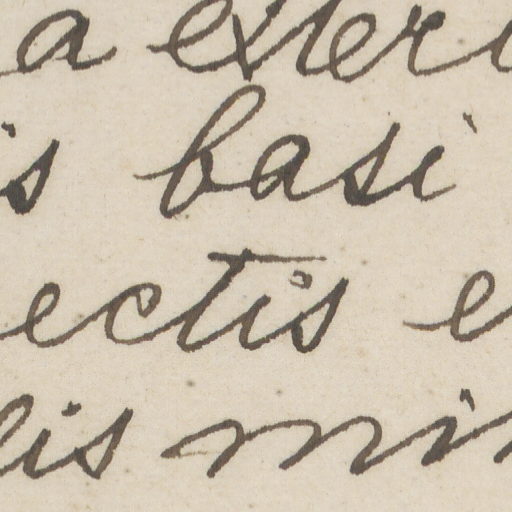 a exteri
is basi
ectis e
lis min